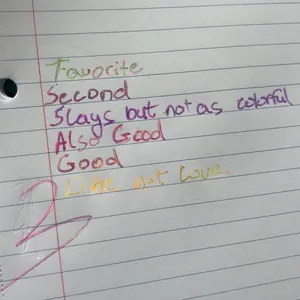 Favorite
Second
Slays but not as colorful
Also Good
Good
Like not Love.